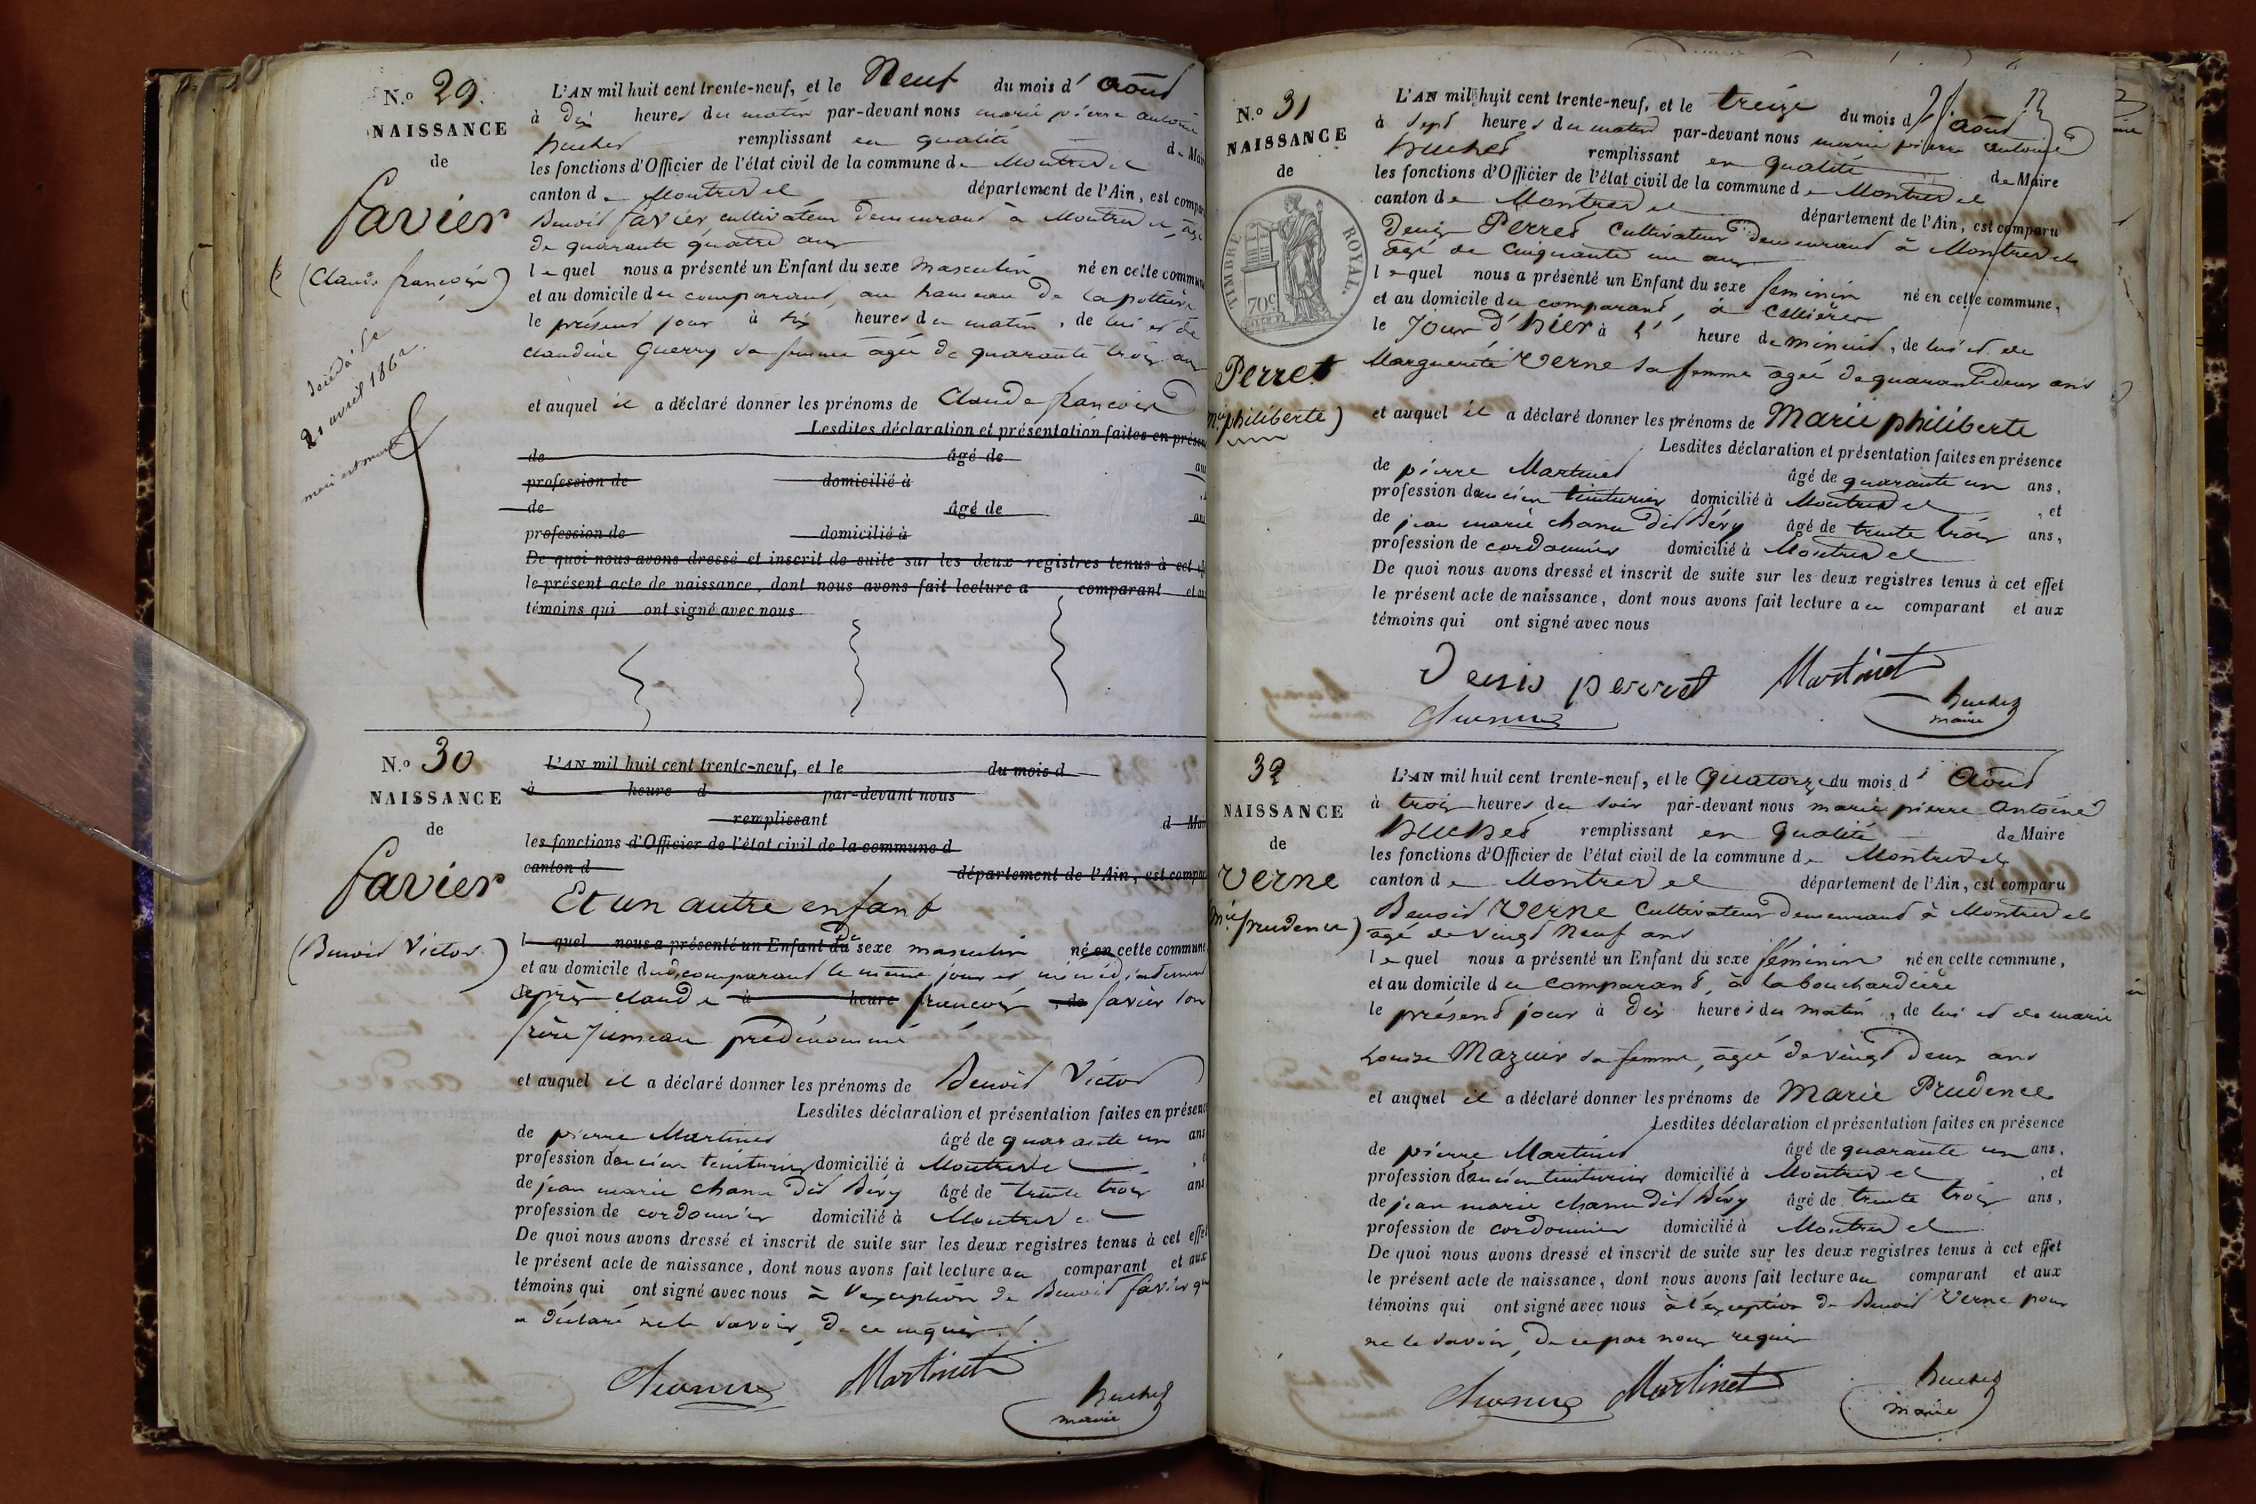 N.o 29.
NAISSANCE
de
favier
(Claude françois)
décédé le
21 avril 1862
L'AN mil huit cent trente-neuf, et le Neuf du mois d' Août
à Dix heures du matin par-devant nous marie pierre antoine
huchet remplissant en qualité de Mai
les fonctions d'Officier de l'état civil de la commune de Montrevel
canton de Montrevel département de l'Ain, est compar
Benoit favier cultivateur demeurant à Montrevel, âgé
de quarante quatre ans
lequel nous a présenté un Enfant du sexe masculin né en cette commun
et au domicile du comparant, au hameau de la
le présent jour à six heures du matin, de lui et de
claudine Guerry sa femme agée de quarante trois ans
et auquel il a déclaré donner les prénoms de Claude françois
Lesdites déclaration et présentation faites en présen
de âgé de
profession de domicilié à
de âgé de
profession de domicilié à
De quoi nous avons dressé et inscrit de suite sur les deux registres tenus à cet
le présent acte de naissance, dont nous avons fait lecture a comparant et au
témoins qui ont signé avec nous
N.o 30
NAISSANCE
de
favier
(Benoit Victor)
L'AN mil huit cent trente-neuf, et le du mois d
à heure d par-devant nous
remplissant d Mai
les fonctions d'Officier de l'état civil de la commune d
canton d département de l'Ain, est compar
Et un autre enfant
l quel nous a présenté un Enfant du de sexe masculin né en cette commune
et au domicile dudit comparant le même jour et immédiatement
après claude à heure françois, de favier son
frère jumeau prédénommé
et auquel il a déclaré donner les prénoms de Benoit Victor
Lesdites déclaration et présentation faites en présence
de pierre Martinet âgé de quarante un ans
profession dancien teinturier domicilié à Montrevel
de jean marie chanu dit Béry âgé de trente trois ans
profession de cordonnier domicilié à Montrevel
De quoi nous avons dressé et inscrit de suite sur les deux registres tenus à cet effet
le présent acte de naissance, dont nous avons fait lecture au comparant et aux
témoins qui ont signé avec nous à l'exception de Benoit favier qui
a déclaré ne le savoir, de ce requis
Martinet
huchet
maire
N.o 31
NAISSANCE
de
TIMBRE ROYAL.
70c
Perret
(mie philiberte)
L'AN mil huit cent trente-neuf, et le treize du mois d' Août
à sept heures du matin par-devant nous marie pierre antoine
huchet remplissant en qualité de Maire
les fonctions d'Officier de l'état civil de la commune de Montrevel
canton de Montrevel département de l'Ain, est comparu
Denis Perret Cultivateur demeurant à Montrevel
âgé de Cinquante un ans
lequel nous a présenté un Enfant du sexe féminin né en cette commune,
et au domicile du comparant, à
le Jour d'hier à heure de minuit, de lui et de
Marguerite Verne sa femme agée de quarante deux ans
et auquel il a déclaré donner les prénoms de Marie philiberte
Lesdites déclaration et présentation faites en présence
de pierre Martinet âgé de quarante un ans,
profession dancien teinturier domicilié à Montrevel, et
de jean marie chanu dit Béry âgé de trente trois ans,
profession de cordonnier domicilié à Montrevel
De quoi nous avons dressé et inscrit de suite sur les deux registres tenus à cet effet
le présent acte de naissance, dont nous avons fait lecture au comparant et aux
témoins qui ont signé avec nous
Denis perret Martinet
huchet
maire
32
NAISSANCE
de
Verne
(mie prudence)
L'AN mil huit cent trente-neuf, et le quatorze du mois d' Août
à trois heures du soir par-devant nous marie pierre Antoine
huchet remplissant en qualité de Maire
les fonctions d'Officier de l'état civil de la commune de Montrevel
canton de Montrevel département de l'Ain, est comparu
Benoit Verne Cultivateur demeurant à Montrevel
âgé de vingt Neuf ans
lequel nous a présenté un Enfant du sexe féminin né en cette commune,
et au domicile du comparant, à la bouchardière
le présent jour à dix heures du matin, de lui et de marie
Louise Mazuir sa femme, agée de vingt deux ans
et auquel il a déclaré donner les prénoms de Marie Prudence
Lesdites déclaration et présentation faites en présence
de pierre Martinet âgé de quarante un ans,
profession dancien teinturier domicilié à Montrevel, et
de jean marie chanu dit Béry âgé de trente trois ans,
profession de cordonnier domicilié à Montrevel
De quoi nous avons dressé et inscrit de suite sur les deux registres tenus à cet effet
le présent acte de naissance, dont nous avons fait lecture au comparant et aux
témoins qui ont signé avec nous à l'exception de Benoit Verne pour
ne le savoir, de ce par nous requis
Martinet
huchet
maire